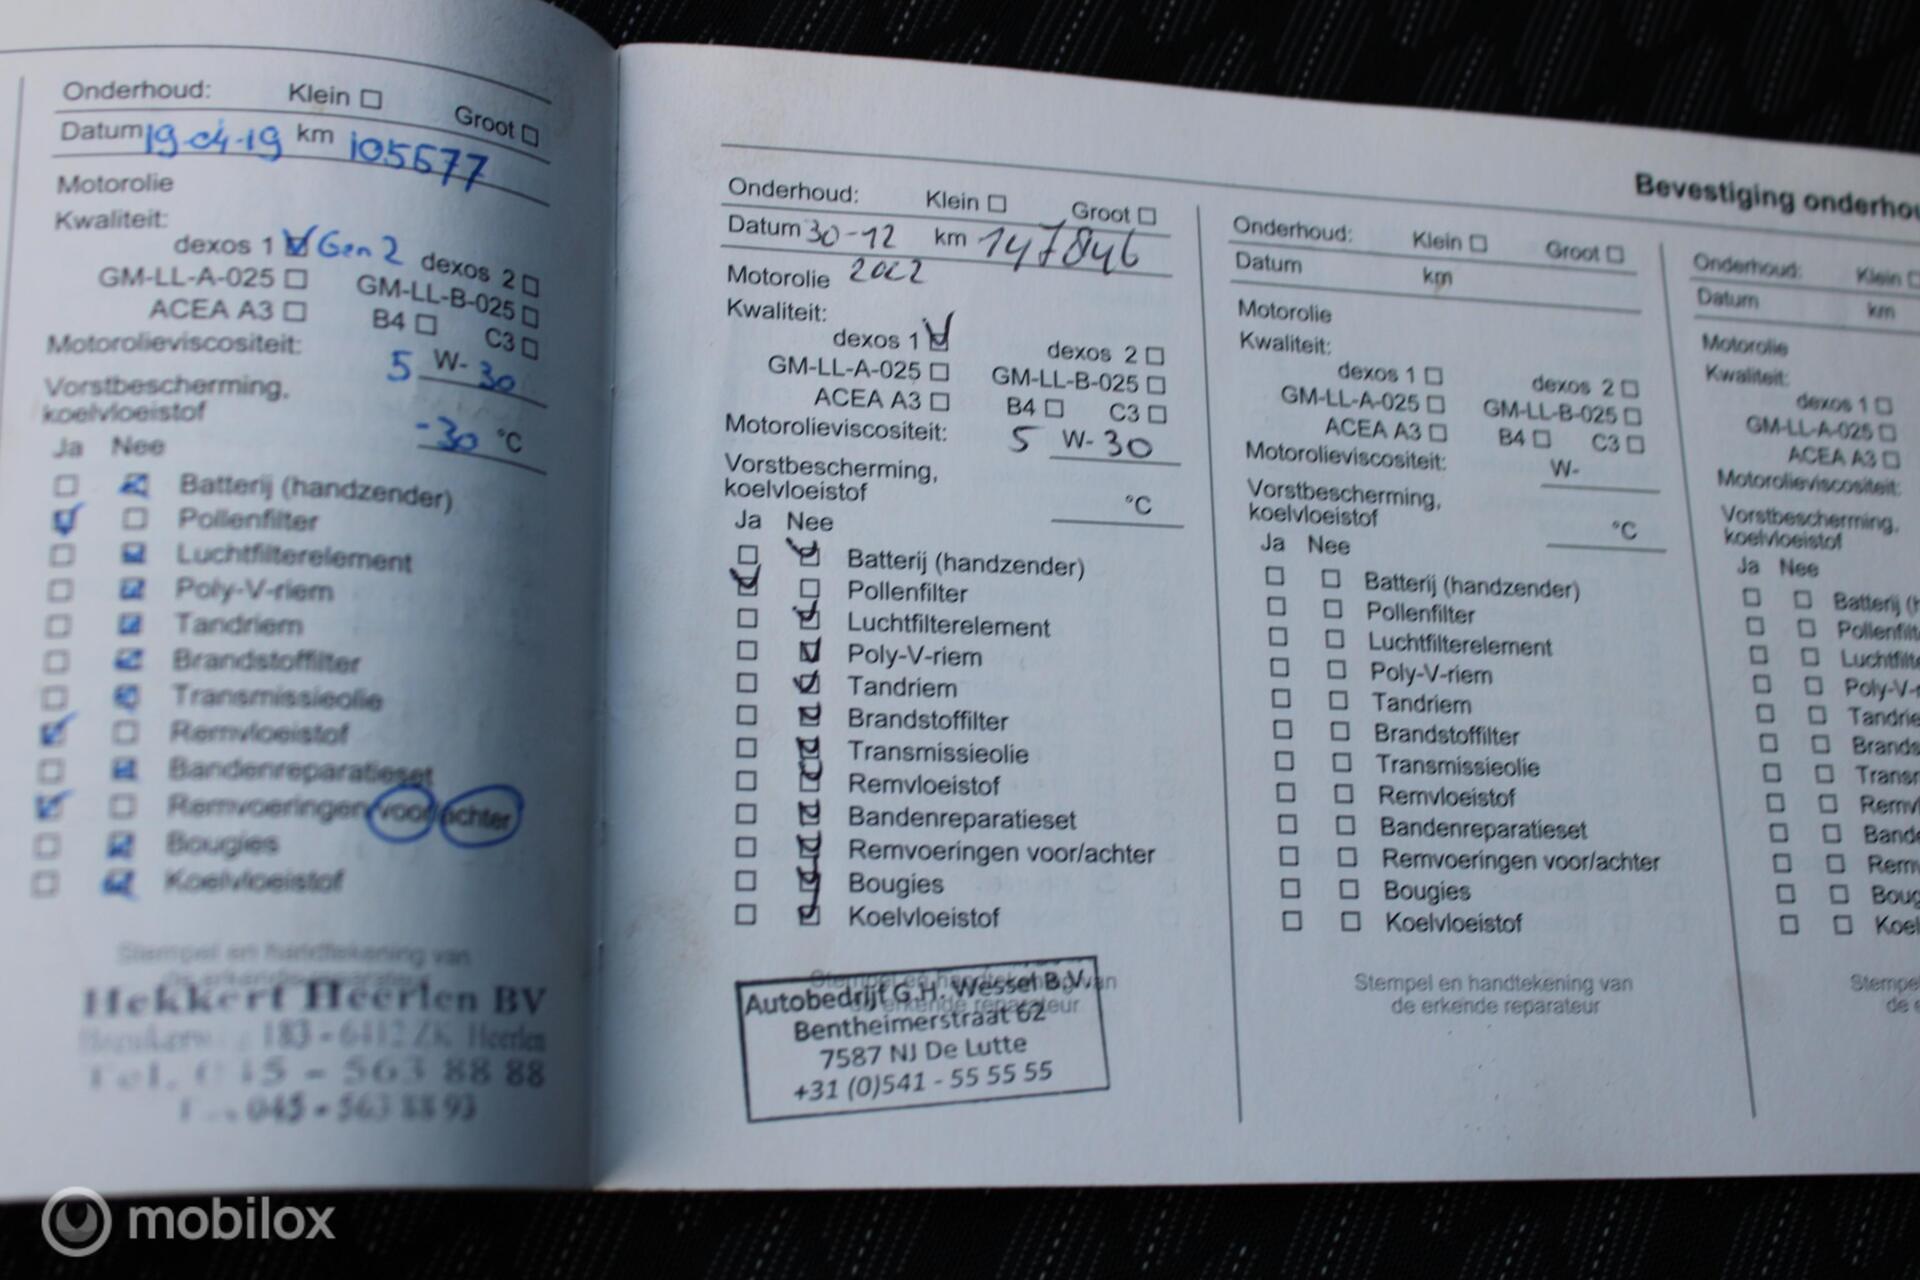 Onderhoud: Klein Groot
Datum 19-04-19 km 105677
Motorolie
Kwaliteit:
dexos 1 Gen 2 dexos 2
GM-LL-A-025 GM-LL-B-025
ACEA A3 B4 C3
Motorolieviscositeit:
5 W- 30
Vorstbescherming,
koelvloeistof
-30 °C
Ja Nee
Batterij (handzender)
Pollenfilter
Luchtfilterelement
Poly-V-riem
Tandriem
Brandstoffilter
Transmissieolie
Remvloeistof
Bandenreparatieset
Remvoeringen voor/achter
Bougies
Koelvloeistof
Stempel en handtekening van
de erkende reparateur
Hekkert Heerlen BV
183 - 6412 ZK Heerlen
Tel. 045 - 563 88 88
045 - 563 88 93
Bevestiging onderhou
Onderhoud: Klein Groot
Datum 30-12 km 147846
Motorolie 2022
Kwaliteit:
dexos 1 dexos 2
GM-LL-A-025 GM-LL-B-025
ACEA A3 B4 C3
Motorolieviscositeit: 5 W- 30
Vorstbescherming,
koelvloeistof °C
Ja Nee
Batterij (handzender)
Pollenfilter
Luchtfilterelement
Poly-V-riem
Tandriem
Brandstoffilter
Transmissieolie
Remvloeistof
Bandenreparatieset
Remvoeringen voor/achter
Bougies
Koelvloeistof
Stempel en handtekening van
de erkende reparateur
Autobedrijf G.H. Wessel B.V.
Bentheimerstraat 62
7587 NJ De Lutte
+31 (0)541 - 55 55 55
Onderhoud: Klein Groot
Datum km
Motorolie
Kwaliteit:
dexos 1 dexos 2
GM-LL-A-025 GM-LL-B-025
ACEA A3 B4 C3
Motorolieviscositeit:
W-
Vorstbescherming,
koelvloeistof °C
Ja Nee
Batterij (handzender)
Pollenfilter
Luchtfilterelement
Poly-V-riem
Tandriem
Brandstoffilter
Transmissieolie
Remvloeistof
Bandenreparatieset
Remvoeringen voor/achter
Bougies
Koelvloeistof
Stempel en handtekening van
de erkende reparateur
Onderhoud: Klein
Datum km
Motorolie
Kwaliteit:
dexos 1
GM-LL-A-025
ACEA A3
Motorolieviscositeit:
Vorstbescherming,
koelvloeistof
Ja Nee
Batterij (h
Pollenfilt
Luchtfilte
Poly-V-r
Tandrie
Brands
Transr
Remvl
Bande
Remv
Boug
Koel
Stempel
de e
mobilox